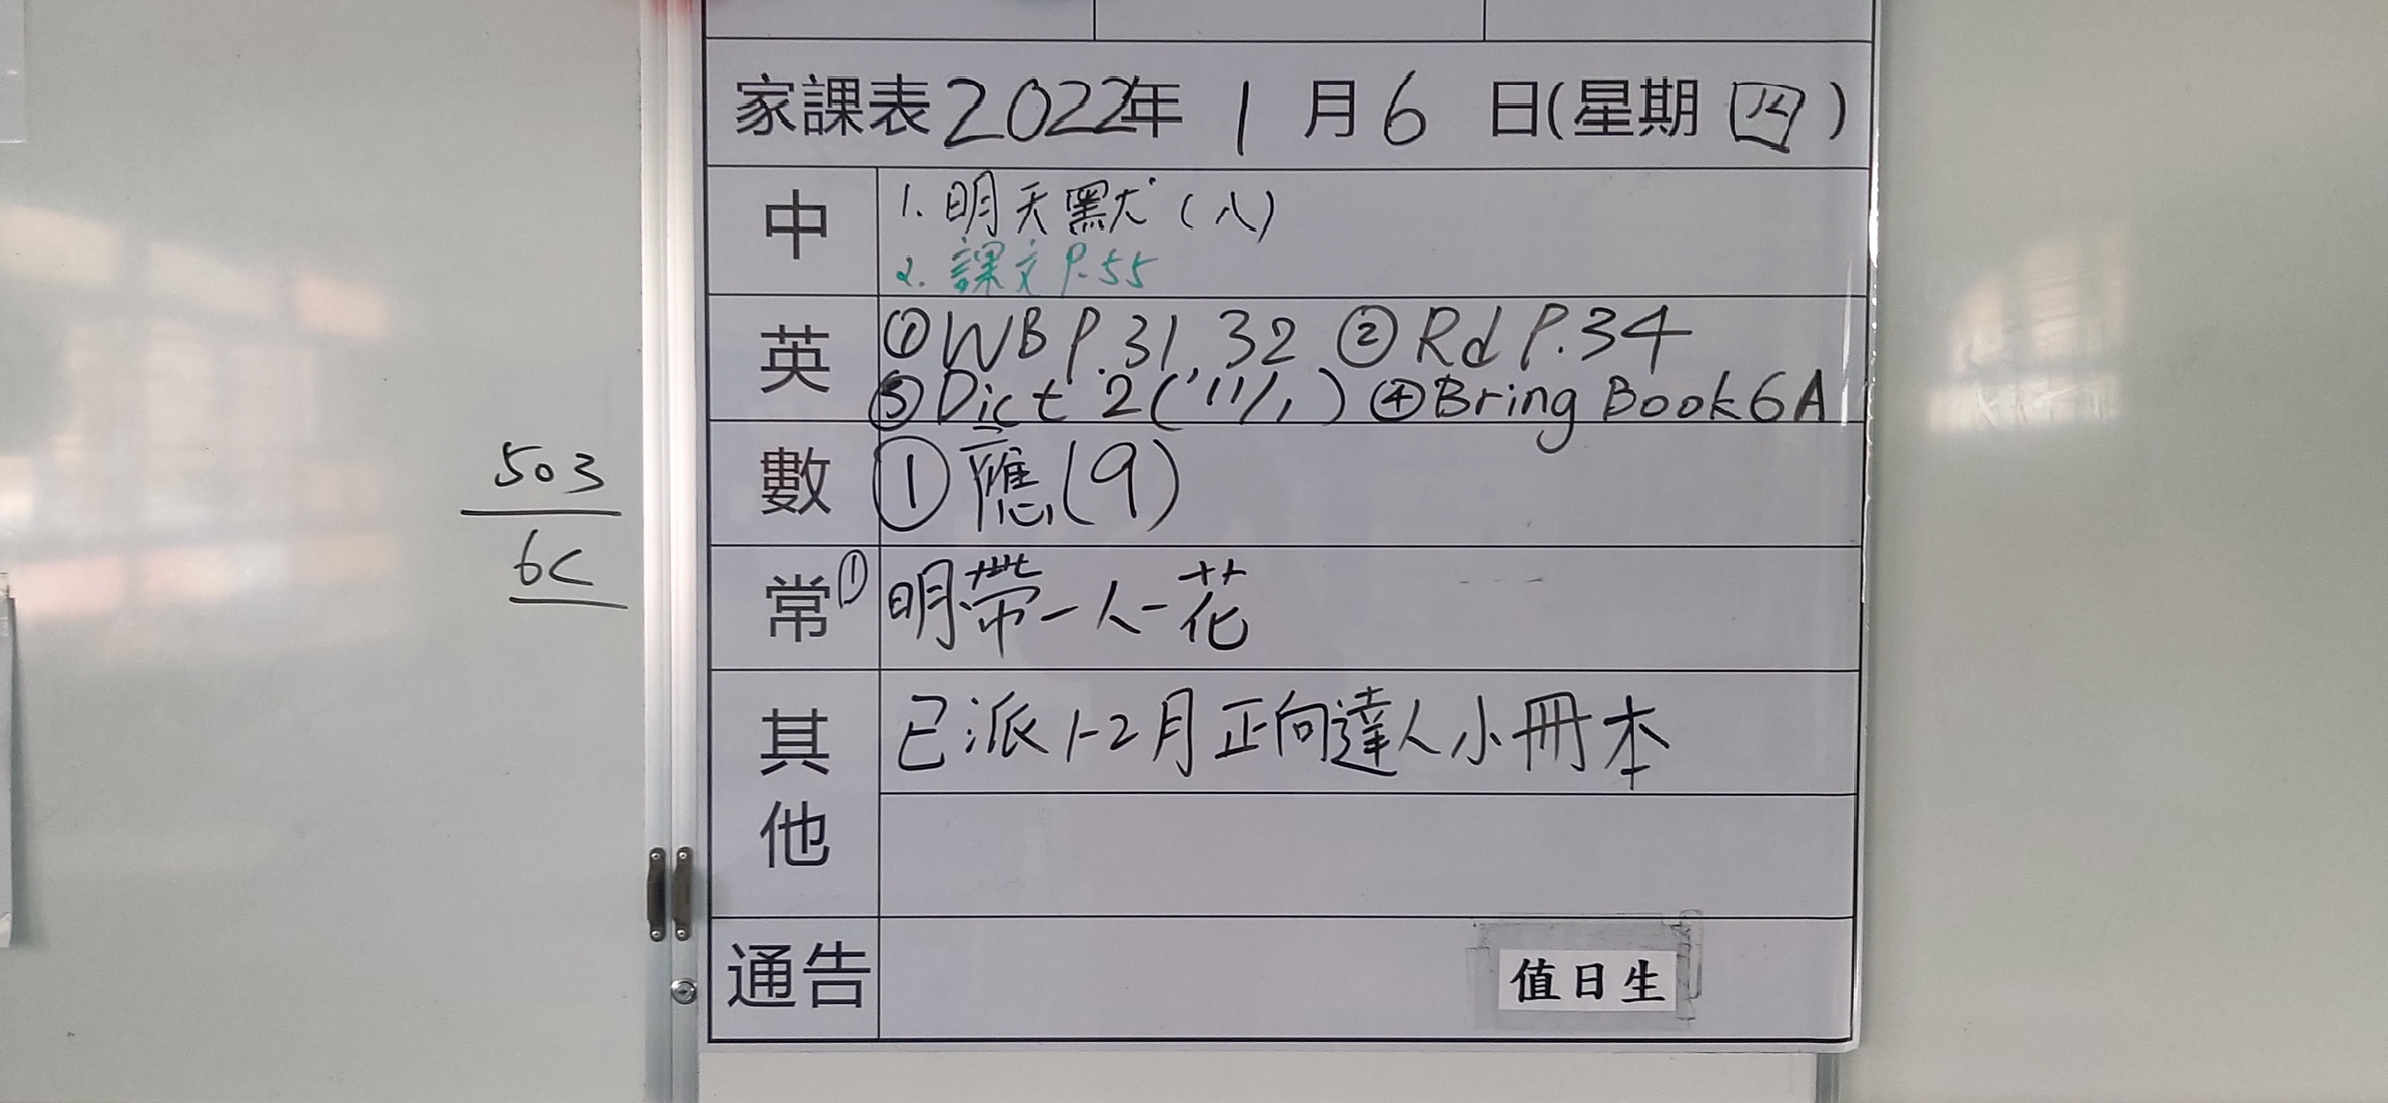 家課表 2022年 1 月 6 日(星期 四)
中
1. 明天默(八)
2. 課文 P.55
英
① WB P.31, 32 ② Rd P.34
③ Dict 2 (11/1) ④ Bring Book 6A
503
6C
數
① 應(9)
常
① 明帶一人一花
其他
已派1-2月正向達人小冊本
通告
值日生